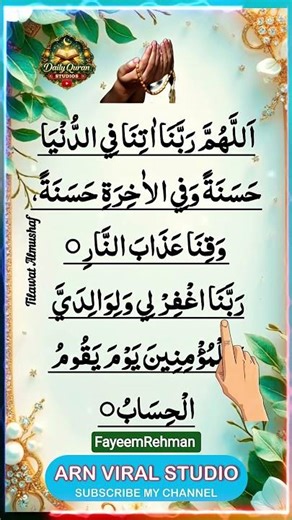 Daily Quran
STUDIOS
اَللَّهُمَّ رَبَّنَا اٰتِنَا فِي الدُّنْيَا
حَسَنَةً وَفِي الْاٰخِرَةِ حَسَنَةً،
وَقِنَا عَذَابَ النَّارِ ○
رَبَّنَا اغْفِرْ لِي وَلِوَالِدَيَّ
لْمُؤْمِنِينَ يَوْمَ يَقُومُ
الْحِسَابُ ○
Tilawat Almushaf
FayeemRehman
ARN VIRAL STUDIO
SUBSCRIBE MY CHANNEL